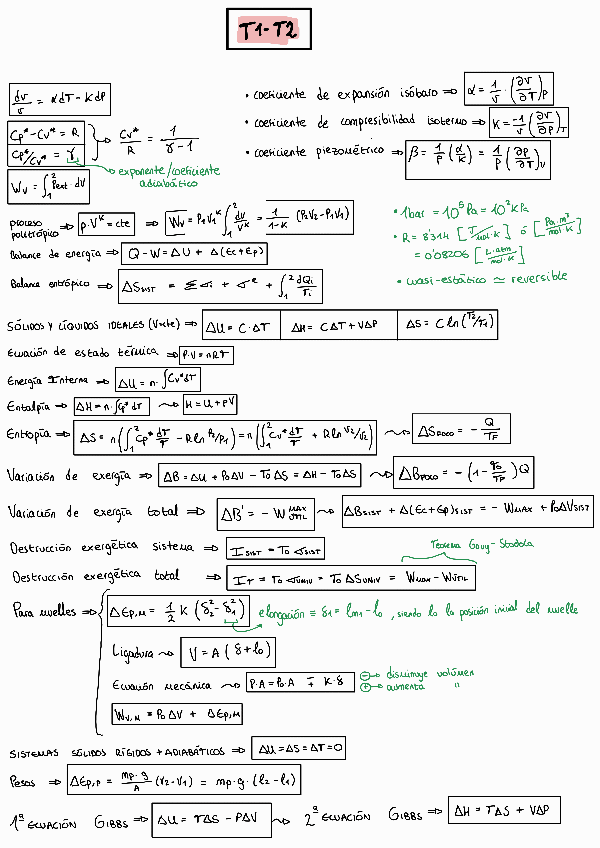 T1-T2
dv/v = αdT - KdP
• coeficiente de expansión isóbaro ⇒ α = 1/v · (∂v/∂T)P
• coeficiente de compresibilidad isotermo ⇒ K = -1/v (∂v/∂P)T
• coeficiente piezométrico ⇒ β = 1/P (α/K) = 1/P (∂P/∂T)v
Cp* - Cv* = R
Cp*/Cv* = γ
Cv*/R = 1/(γ-1)
→ exponente/coeficiente adiabático
Wv = ∫₁² Pext·dV
proceso politrópico ⇒ P·V^K = cte ⇒ Wv = P1V1^K ∫₁² dV/V^K = 1/(1-K) (P2V2 - P1V1)
• 1bar = 10⁵ Pa = 10² kPa
• R = 8'314 [J/mol·K] ó [Pa·m³/mol·K]
= 0'08206 [L·atm/mol·K]
• cuasi-estático ≃ reversible
Balance de energía ⇒ Q - W = ΔU + Δ(Ec+Ep)
Balance entrópico ⇒ ΔSSIST = Σσi + σe + ∫₁² dQi/Ti
SÓLIDOS Y LÍQUIDOS IDEALES (V=cte) ⇒ ΔU = C·ΔT | ΔH = CΔT + VΔP | ΔS = C ln(T2/T1)
Ecuación de estado térmica ⇒ P·V = nRT
Energía Interna ⇒ ΔU = n·∫Cv*dT
Entalpía ⇒ ΔH = n·∫Cp*dT ⇝ H = U + PV
Entropía ⇒ ΔS = n(∫₁² Cp* dT/T - R ln P2/P1) = n(∫₁² Cv* dT/T + R ln V2/V2) ⇝ ΔSFOCO = - Q/TF
Variación de exergía ⇒ ΔB = ΔU + P0ΔV - T0ΔS = ΔH - T0ΔS ⇝ ΔBFOCO = -(1 - T0/TF)Q
Variación de exergía total ⇒ ΔB' = -W MAX ÚTIL ⇝ ΔBSIST + Δ(Ec+Ep)SIST = -WMAX + P0ΔVSIST
Destrucción exergética sistema ⇒ ISIST = T0 σSIST
Teorema Gouy-Stodola
Destrucción exergética total ⇒ IT = T0 σUNIV = T0 ΔSUNIV = WMAX - WÚTIL
Para muelles ⇒ ΔEp,M = 1/2 K (δ2² - δ1²) elongación ≡ δ1 = lm1 - l0, siendo l0 la posición inicial del muelle
Ligadura ⇝ V = A(δ + l0)
Ecuación mecánica ⇝ P·A = P0·A ∓ K·δ
⊖→ disminuye volúmen
⊕→ aumenta "
WV,M = P0ΔV + ΔEp,M
SISTEMAS SÓLIDOS RÍGIDOS + ADIABÁTICOS ⇒ ΔU = ΔS = ΔT = 0
Pesos ⇒ ΔEp,P = mp·g/A (V2 - V1) = mp·g·(l2 - l1)
1ª ECUACIÓN GIBBS ⇒ ΔU = TΔS - PΔV ⇝ 2ª ECUACIÓN GIBBS ⇒ ΔH = TΔS + VΔP